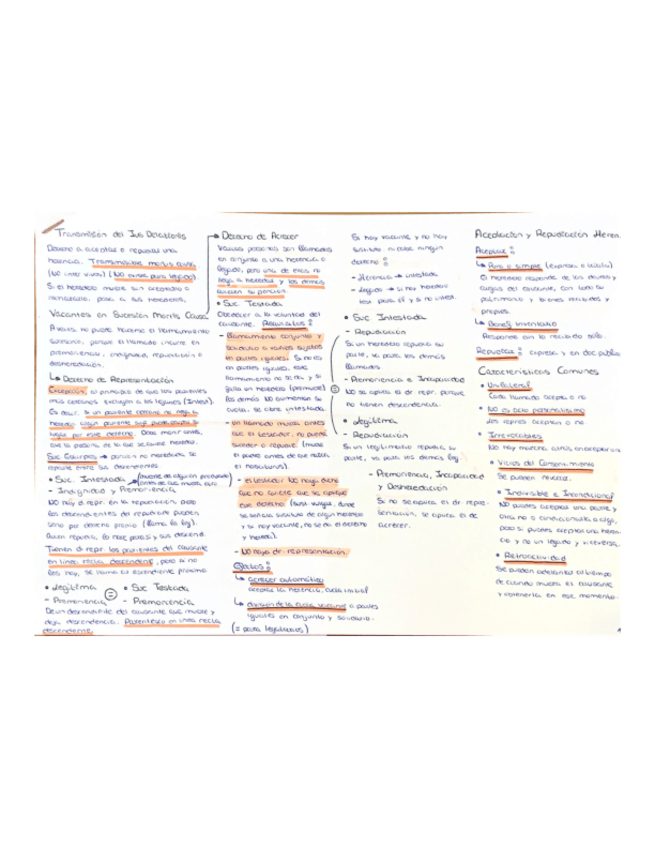 Transmisión del Ius Delationis
Derecho a aceptar o repudiar una
herencia. Transmisible mortis causa
(No inter vivos) (No sirve para legado)
Si el heredero muere sin aceptarla o
rechazarla, pasa a sus herederos.
Vacantes en Sucesión Mortis Causa
A veces no puede hacerse el llamamiento
sucesorio, porque el llamado incurre en
premoriencia, indignidad, repudiación o
desheredación.
↳ Derecho de Representación
Excepción al principio de que los parientes
más cercanos excluyen a los lejanos (Intest).
Es decir, si un pariente cercano no llega a
heredar, algún pariente suyo
por este derecho. Debe morir antes,
que la persona de la que se quiere heredar.
Suc Estirpes → porción no heredada, se
reparte entre sus descendientes
• Suc. Intestada
- Indignidad y Premoriencia
No hay d repr. en la repudiación, pero
los descendientes del repudiante pueden
serlo por derecho propio (llama la ley).
Quien repudia, lo hace para sí y sus descend.
Tienen d repr. los parientes del causante
en línea recta descendente, pero si no
los hay, se llama al ascendiente próximo.
• Legítima
- Premoriencia
=
• Suc Testada
- Premoriencia
De un descendiente del causante que muere y
deja descendencia. Parentesco en línea recta
descendente.
Derecho de Acrecer
Varias personas son llamadas
en conjunto a una herencia o
legado, pero una de ellas no
llega a heredar y los demás
su porción
• Suc Testada
Obedecer a la voluntad del
causante. Requisitos:
- llamamiento conjunto y
solidario a varios sujetos
en partes iguales. Si no es
en partes iguales, este
llamamiento no se da, y si
falla un heredero (premuere)
los demás no aumentan su
cuota, se abre intestada.
- un llamado muera antes
que el testador, no pueda
suceder o repudie. (muere
el padre antes de que nazca
el nasciturus).
- el testador No haya dicho
que no quiere que se aplique
este derecho (sust vulgar, donde
se señala sustituto de algún heredero
y si hay vacante, no se da el derecho
y hereda).
- No haya dr. representación.
Efectos:
↳ acrecer automático
acepta la herencia, cuota inicial
↳ división de la cuota vacante a partes
iguales en conjunto y solidario.
(= para legatarios)
Si hay vacante y no hay
sustituto, ni cabe ningún
derecho:
- Herencia → intestada.
- Legado → si hay heredero
test para él y si no intest.
• Suc Intestada
- Repudiación
Si un heredero repudia su
parte, va para los demás
llamados.
- Premoriencia e Incapacidad
No se aplica el dr repr, porque
no tienen descendencia.
• Legítima
- Repudiación
Si un legitimario repudia su
parte, va para los demás leg.
- Premoriencia, Incapacidad
y Desheredación
Si no se aplica el dr repre-
sentación, se aplica el de
acrecer.
Aceptación y Repudiación Heren.
Aceptar:
↳ Pura o simple (expresa o tácita)
El heredero responde de las deudas y
cargas del causante, con todo su
patrimonio y bienes recibidos y
propios.
↳ Benef. Inventario
Responde con lo recibido sólo.
Repudiar: expresa y en doc público
Características Comunes
• Unilateral
Cada llamado acepta o no.
• No es acto personalísimo
Los repres aceptan o no.
• Irrevocables
No hay marcha atrás en aceptación
• Vicios del Consentimiento
Se pueden revocar.
• Indivisible e Incondicional
No puedes aceptar una parte y
otra no o condicionarla a algo,
pero sí puedes aceptar una heren-
cia y no un legado y viceversa.
• Retroactividad
Se pueden adelantar al tiempo
de cuando muera el causante
y obtenerla en ese momento.